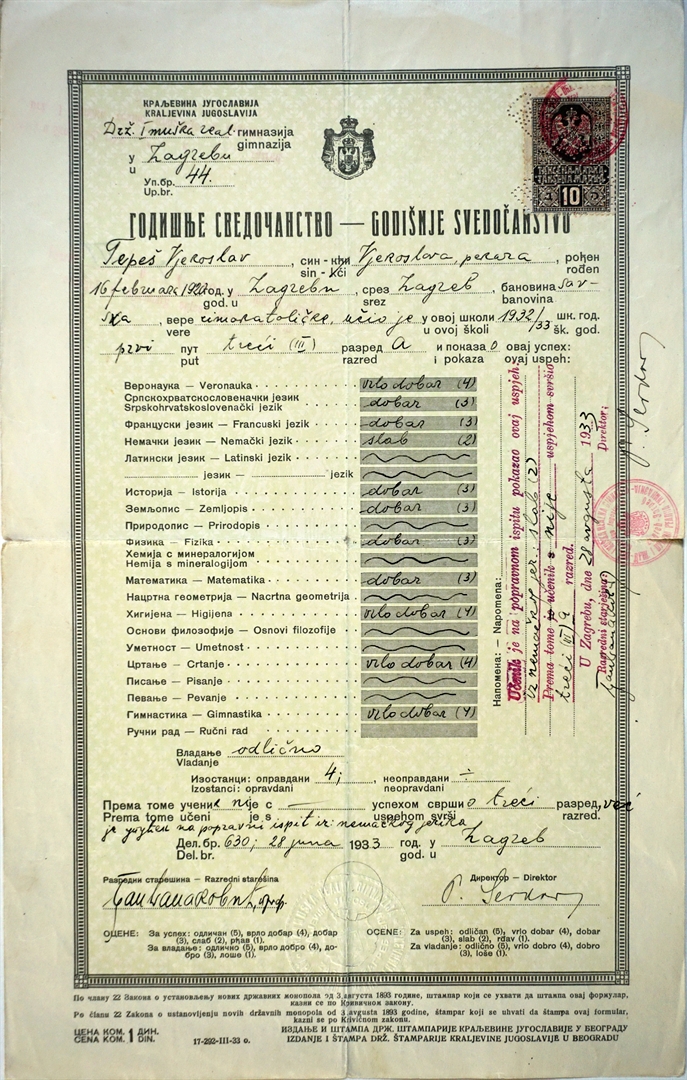 КРАЉЕВИНА ЈУГОСЛАВИЈА
KRALJEVINA JUGOSLAVIJA
Drž. I muška real. гимназија
gimnazija
у Zagrebu
u
Уп.бр. 44.
Up.br.
10
ГОДИШЊЕ СВЕДОЧАНСТВО — GODIŠNJE SVEDOČANSTVO
Tepeš Vjekoslav, син - кћи Vjekoslava, pekara, рођен
sin - kći rođen
16 februara 1920 год. у Zagrebu, срез Zagreb, бановина Sav-
god. u srez banovina
ska, вере rimokatoličke, učio je у овој школи 1932/33 шк. год.
vere u ovoj školi šk. god.
prvi пут treći (III) разред A и показао овај успех:
put razred i pokaza ovaj uspeh:
Веронаука — Veronauka vrlo dobar (4)
Српскохрватскословеначки језик
Srpskohrvatskoslovenački jezik dobar (3)
Француски језик — Francuski jezik dobar (3)
Немачки језик — Nemački jezik slab (2)
Латински језик — Latinski jezik
језик — jezik
Историја — Istorija dobar (3)
Земљопис — Zemljopis dobar (3)
Природопис — Prirodopis
Физика — Fizika dobar (3)
Хемија с минералогијом
Hemija s mineralogijom
Математика — Matematika dobar (3)
Нацртна геометрија — Nacrtna geometrija
Хигијена — Higijena vrlo dobar (4)
Основи филозофије — Osnovi filozofije
Уметност — Umetnost
Цртање — Crtanje vrlo dobar (4)
Писање — Pisanje
Певање — Pevanje
Гимнастика — Gimnastika vrlo dobar (4)
Ручни рад — Ručni rad
Напомена: — Napomena:
Učenik je na popravnom ispitu pokazao ovaj uspjeh:
iz nemačkog jez.: slab (2)
Prema tome je učenik s nije uspjehom svršio
treći III/a razred.
U Zagrebu, dne 28 avgusta 1933
Razredni starješina: Direktor:
Владање odlično
Vladanje
Изостанци: оправдани 4; , неоправдани ÷
Izostanci: opravdani neopravdani
Према томе ученик nije с — успехом сврши o treći разред, već
Prema tome učeni je s uspehom svrši razred.
je upućen na popravni ispit iz nemačkog jezika
Дел. бр. 630; 28 juna 1933 год. у Zagreb
Del. br. god. u
Разредни старешина — Razredni starešina
Директор — Direktor
ОЦЕНЕ: За успех: одличан (5), врло добар (4), добар
(3), слаб (2), рђав (1).
За владање: одлично (5), врло добро (4), до-
бро (3), лоше (1).
OCENE: Za uspeh: odličan (5), vrlo dobar (4), dobar
(3), slab (2), rđav (1).
Za vladanje: odlično (5), vrlo dobro (4), dobro
(3), loše (1).
По члану 22 Закона о установљењу нових државних монопола од 3 августа 1893 године, штампар који се ухвати да штампа овај формулар,
казни се по Кривичном закону.
Po članu 22 Zakona o ustanovljenju novih državnih monopola od 3 avgusta 1893 godine, štampar koji se uhvati da štampa ovaj formular,
kazni se po Krivičnom zakonu.
ЦЕНА КОМ. 1 ДИН.
CENA KOM. DIN.
17-292-III-33 o.
ИЗДАЊЕ И ШТАМПА ДРЖ. ШТАМПАРИЈЕ КРАЉЕВИНЕ ЈУГОСЛАВИЈЕ У БЕОГРАДУ
IZDANJE I ŠTAMPA DRŽ. ŠTAMPARIJE KRALJEVINE JUGOSLAVIJE U BEOGRADU